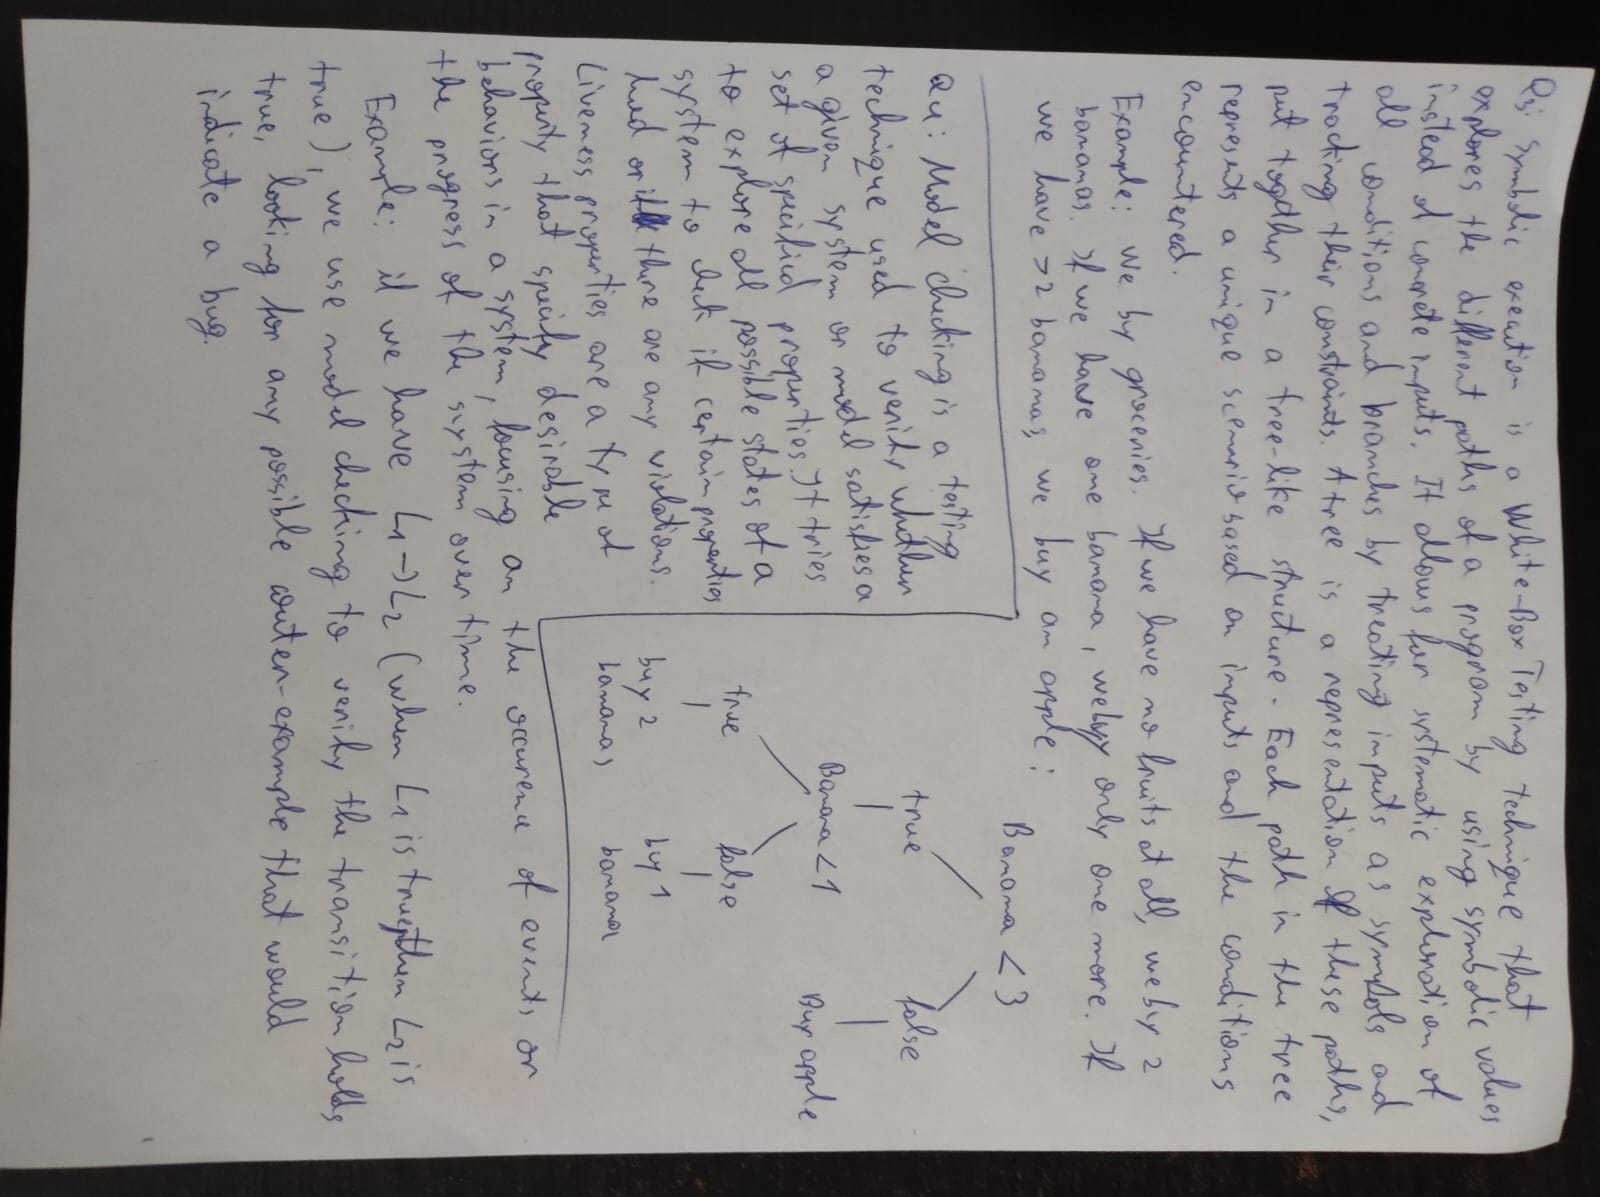 Q3: Symbolic execution is a White-Box Testing technique that
explores the different paths of a program by using symbolic values
instead of concrete inputs. It allows for systematic exploration of
all conditions and branches by treating inputs as symbols and
tracking their constraints. A tree is a representation of these paths,
put together in a tree-like structure. Each path in the tree
represents a unique scenario based on inputs and the conditions
encountered.
Example: We buy groceries. If we have no fruits at all, we buy 2
bananas. If we have one banana, we buy only one more. If
we have >2 bananas, we buy an apple:
Banana < 3
true false
Banana < 1 Buy apple
true false
buy 2 buy 1
bananas banana
Q4: Model checking is a testing
technique used to verify whether
a given system or model satisfies a
set of specified properties. It tries
to explore all possible states of a
system to check if certain properties
hod or if there are any violations.
Liveness properties are a type of
property that specify desirable
behaviors in a system, focusing on the occurence of events or
the progress of the system over time.
Example: if we have L1 → L2 (when L1 is true, then L2 is
true), we use model checking to verify the transition holds
true, looking for any possible couter-example that would
indicate a bug.